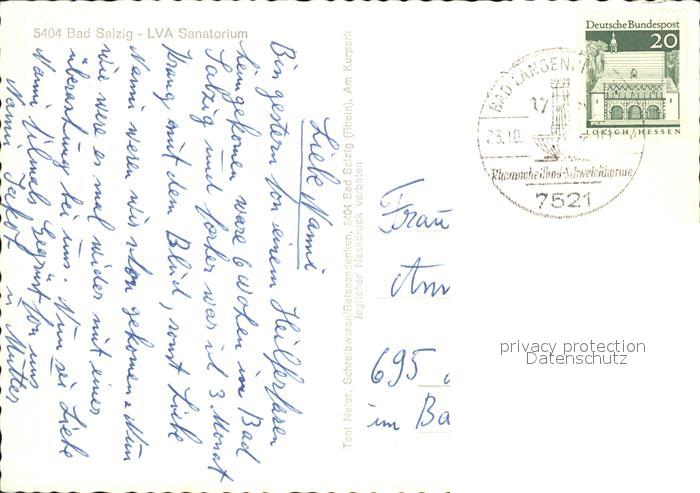 5404 Bad Salzig - LVA Sanatorium
Liebe Nanni
Bin gestern von einem Heilferfaren
heimgekomen, ware 6 wochen in Bad
Salzig und forher war ich 3. Monat
Krang mit dem Blud, sonst Liebe
Nanni weren wir schon gekomen. Nun
wie were es mal wider mit einer
überaschung bei uns. Nun sei Liebe
Nanni filmals Gegrüst fon uns
Nanni Jakob u Mutter
Toni Neier, Schreibwaren/Reiseandenken, 5404 Bad Salzig (Rhein), Am Kurpark
Jeglicher Nachdruck verboten
Deutsche Bundespost
20
LORSCH/HESSEN
BAD LANGENB
17
23.10.
Rheumaheilbad-Schwefeltherme
7521
Frau
Am
695
im Ba
privacy protection
Datenschutz